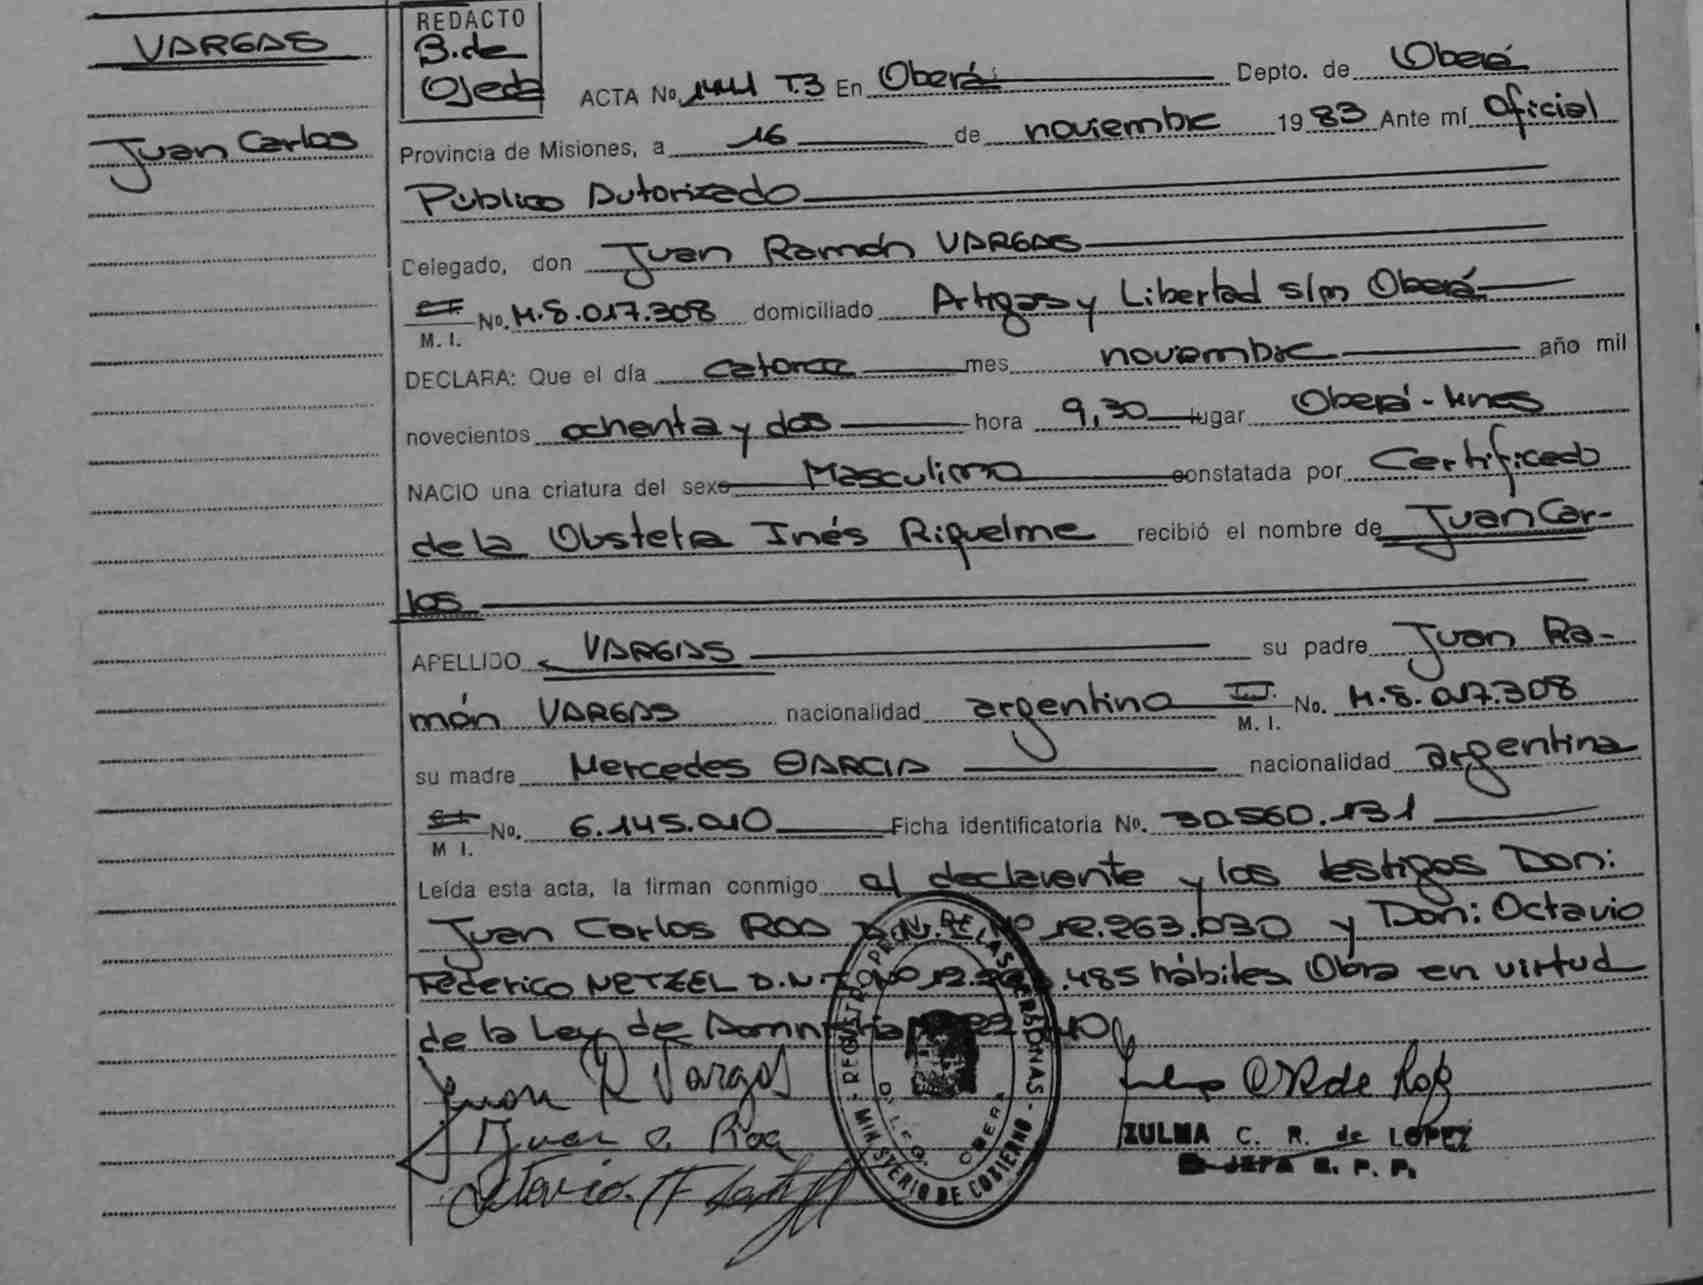 VARGAS
Juan Carlos
REDACTO
B. de
Ojeda
ACTA No. 1441 T.3 En Oberá Depto. de Oberá
Provincia de Misiones, a 16 de noviembre 1983 Ante mí Oficial
Público Autorizado
Delegado, don Juan Ramón VARGAS
No. M.8.017.308 domiciliado Artigas y Libertad s/n Oberá
M. I.
DECLARA: Que el día catorce mes noviembre año mil
novecientos ochenta y dos hora 9,30 lugar Oberá-Mnes
NACIO una criatura del sexo Masculino constatada por Certificado
de la Obstetra Inés Riquelme recibió el nombre de Juan Car-
los
APELLIDO VARGAS su padre Juan Ra-
món VARGAS nacionalidad argentina No. M.8.017.308
M. I.
su madre Mercedes GARCIA nacionalidad argentina
No. 6.145.010 Ficha identificatoria No. 30.560.131
M I.
Leída esta acta, la firman conmigo el declarente y los testigos Don:
Juan Carlos ROA D.N.I. Nº 12.263.030 y Don: Octavio
Federico NETZEL D.N.I. Nº .485 hábiles Obra en virtud
de la Ley de Amnistía
Juan R Vargas
Juan C. Roa
Octavio F
REGISTRO PROV. DE LAS PERSONAS - MINISTERIO DE GOBIERNO
DELEG. OBERA
ZULMA C. R. de LOPEZ
JEFA R. P. P.